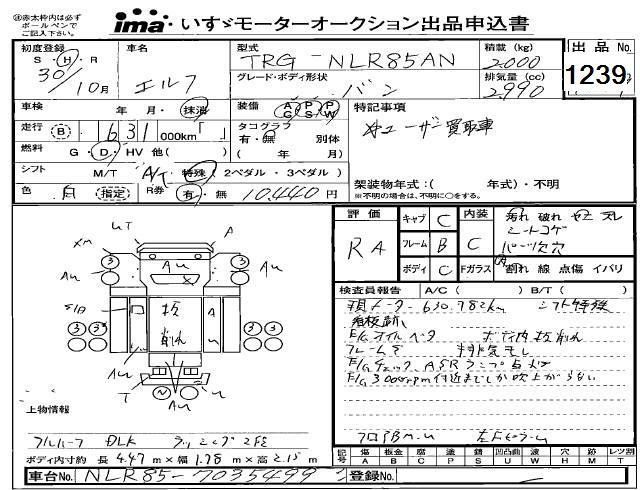 ④赤太枠内は必ず
ボールペンで
ご記入下さい。
ima いすゞモーターオークション出品申込書
初度登録 S・H・R 30/10月
車名 エルフ
型式 TRG-NLR85AN
積載(kg) 2,000
出品No. 1239
グレード・ボディ形状 バン
排気量(cc) 2,990
車検 年 月・抹消
装備 AG PS PW
特記事項
走行 B 631,000km「 」
タコグラフ 有・無 別体 ( 年 月)
元ユーザー買取車
燃料 G・D・HV 他( )
シフト M/T A/T 特殊(2ペダル・3ペダル)
架装物年式:( 年式)・不明
※不明の場合は、不明に○をする。
色 白 (指定) R券 有・無 10,440円
評価 RA
キャブ C
フレーム B
ボディ C
内装 C
汚れ 破れ ヤセ スレ
シートコゲ
パーツ欠穴
Fガラス 割れ 線 点傷 イバリ
検査員報告 A/C( ) B/T( )
現メーター630,782km シフト特殊
看板跡
E/Gオイルベタ ボディ内板削れ
フレームサ 排気モレ
E/Gチェック、ASRランプ点灯
E/G3000rpm付近までしか吹上がらない
UT A
XM
Au
Au
A
S/B
板
削れ
A
T
T
Au
A
3 3 3 3
上物情報
フルハーフ DLK ラッシング2段
ボディ内寸約 長4.47m×幅1.78m×高2.15m
記号 傷A 板金B 腐C 塗P 錆S 凹凸U 曲W 穴H 跡M レンズ割T
車台No. NLR85-7035499
登録No.